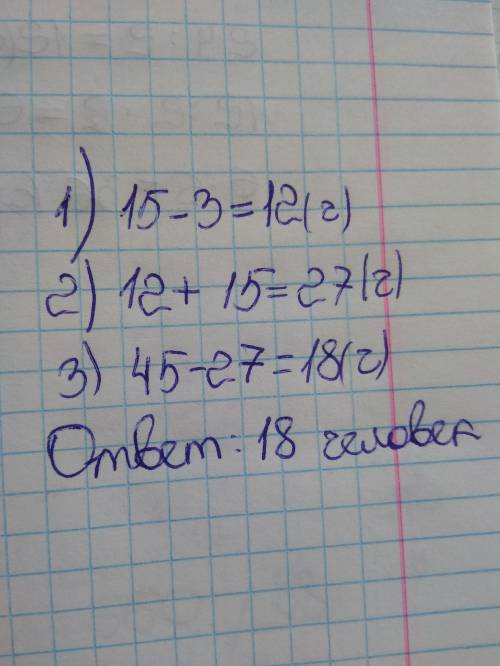 1) 15-3=12(ч)
2) 12+15=27(ч)
3) 45-27=18(ч)
Ответ: 18 человек